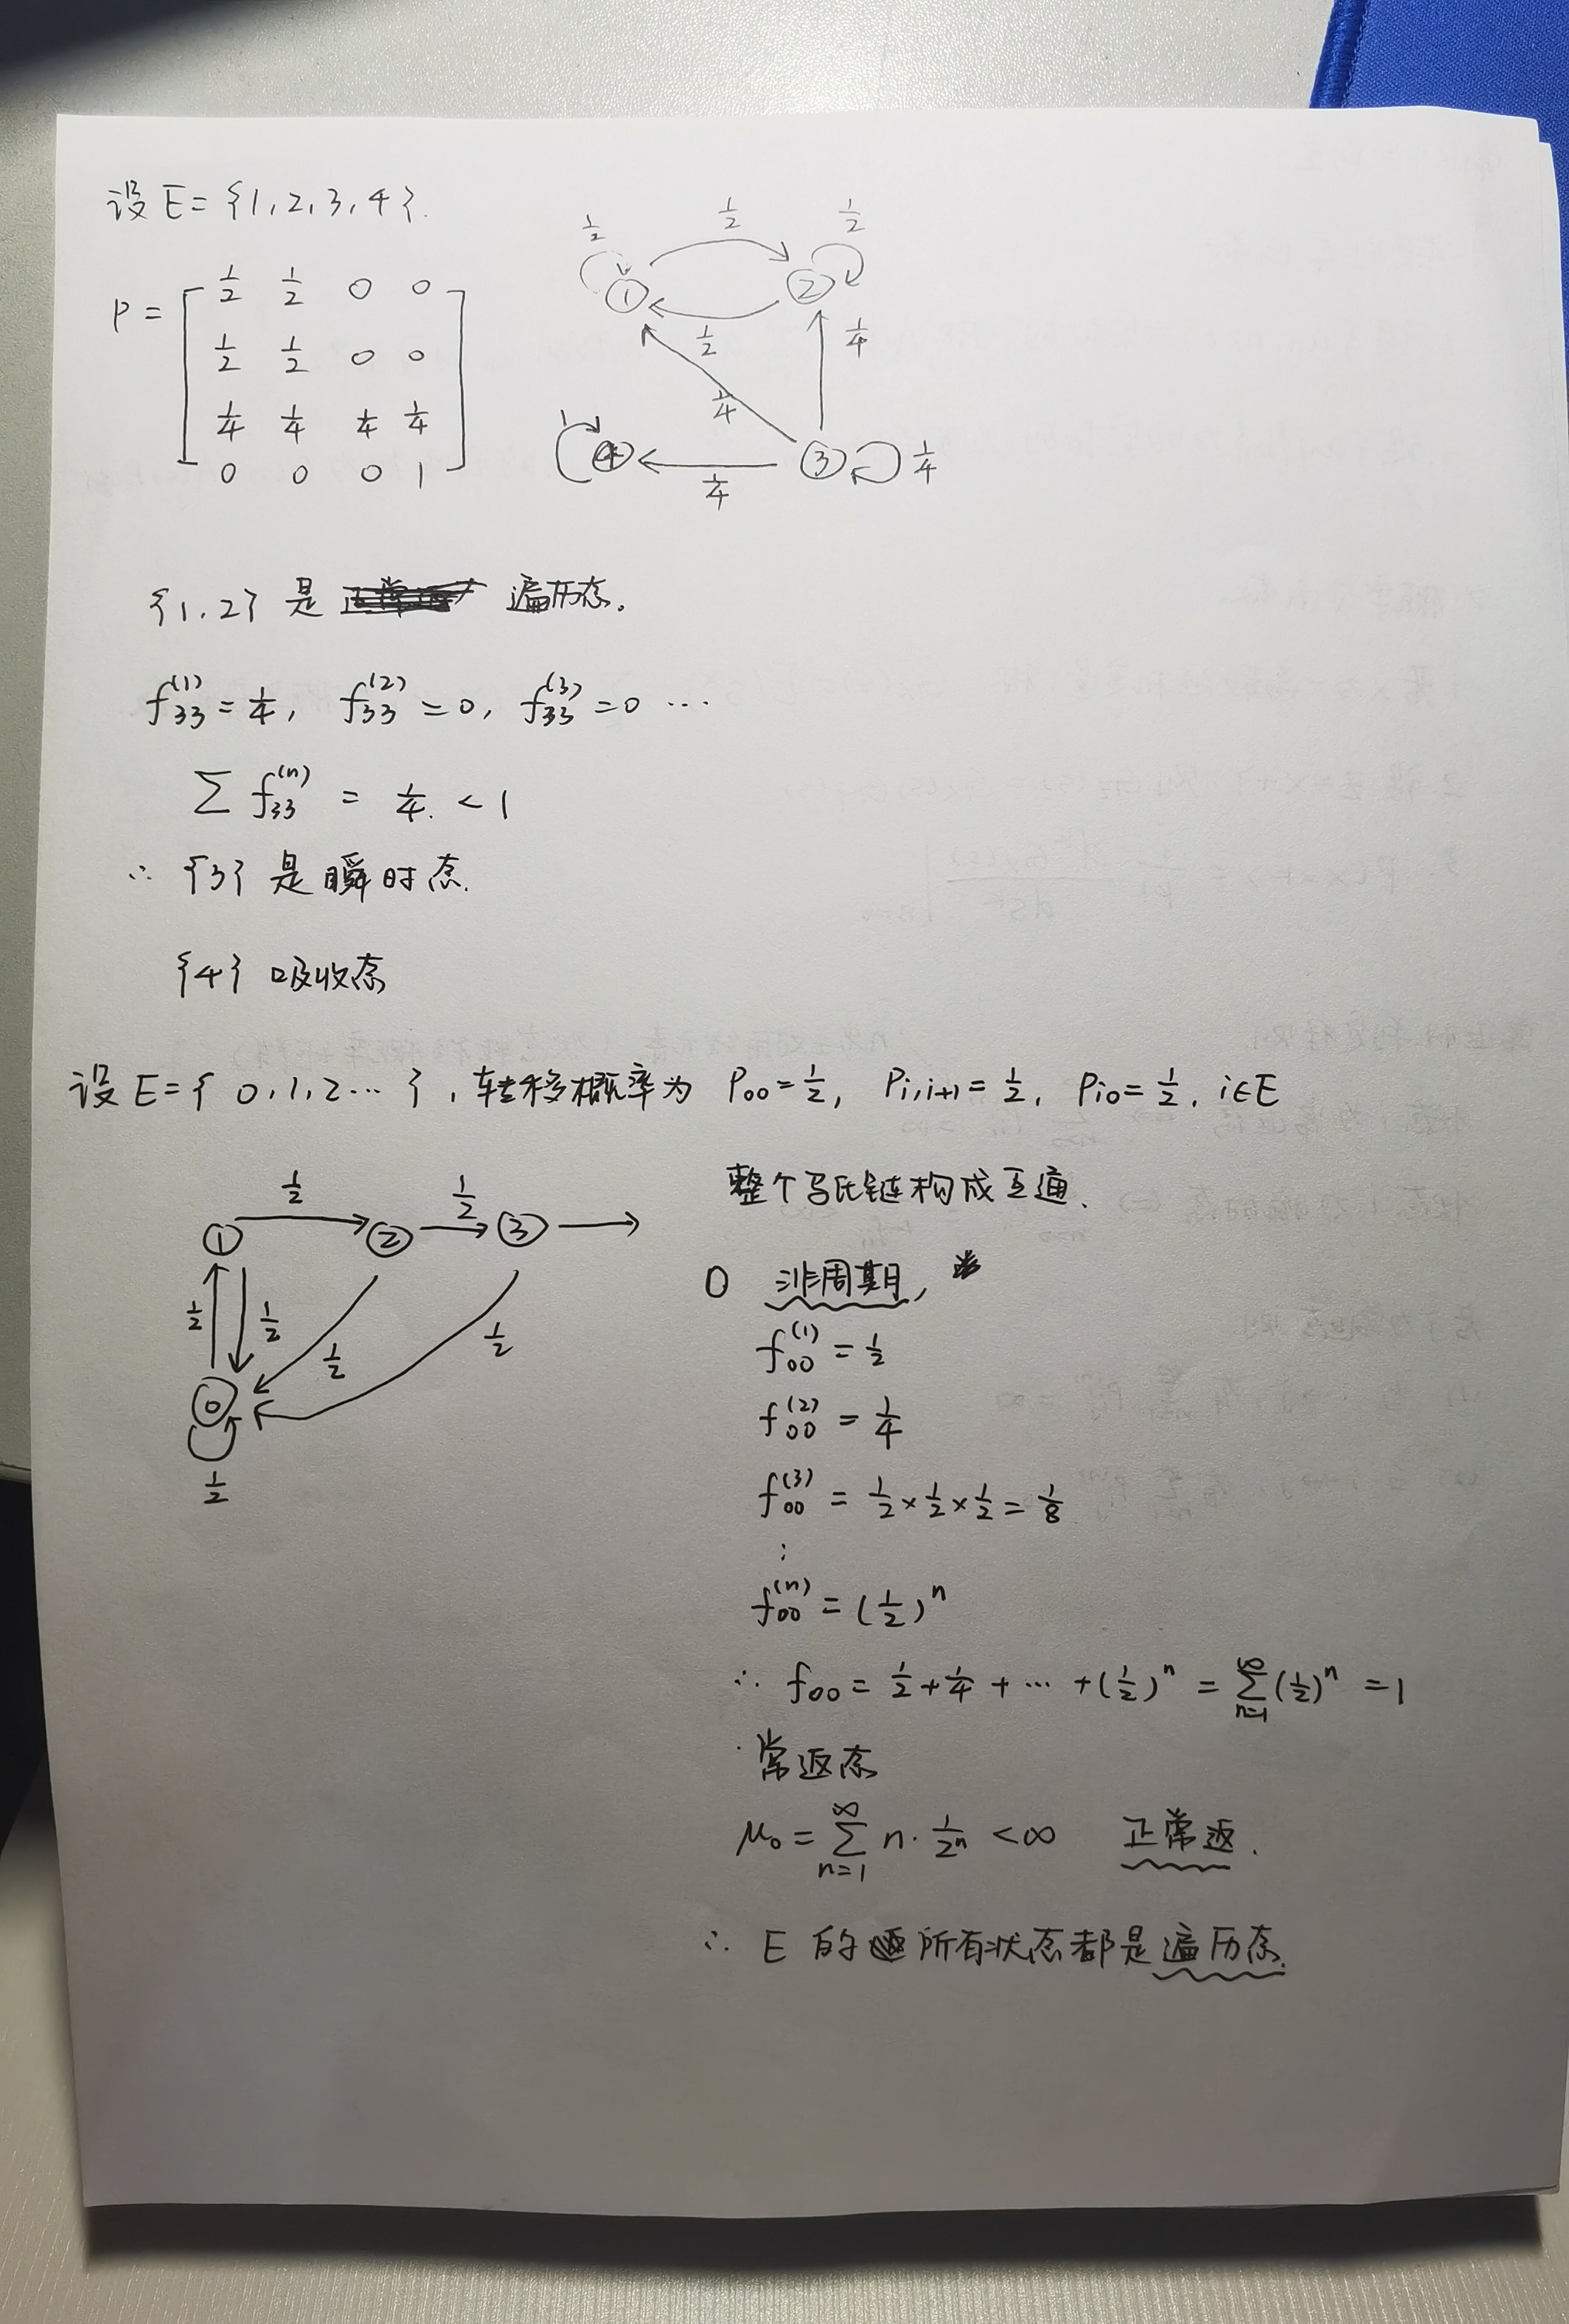 设 E = {1, 2, 3, 4}.
P = [ 1/2 1/2 0 0
1/2 1/2 0 0
1/4 1/4 1/4 1/4
0 0 0 1 ]
1/2 1/2 1/2
① ②
1/2 1/4
1/4
1 ④ ③ 1/4
1/4
{1, 2} 是 遍历态.
f₃₃⁽¹⁾ = 1/4, f₃₃⁽²⁾ = 0, f₃₃⁽³⁾ = 0 ⋯
∑ f₃₃⁽ⁿ⁾ = 1/4 < 1
∴ {3} 是瞬时态.
{4} 吸收态
设 E = { 0, 1, 2 ⋯ }, 转移概率为 P₀₀ = 1/2, Pᵢ,ᵢ₊₁ = 1/2, Pᵢ₀ = 1/2, i∈E
1/2 1/2
① → ② → ③ →
1/2 1/2 1/2 1/2
⓪
1/2
整个马氏链构成互通.
0 非周期,
f₀₀⁽¹⁾ = 1/2
f₀₀⁽²⁾ = 1/4
f₀₀⁽³⁾ = 1/2 × 1/2 × 1/2 = 1/8
⋮
f₀₀⁽ⁿ⁾ = (1/2)ⁿ
∴ f₀₀ = 1/2 + 1/4 + ⋯ + (1/2)ⁿ = ∑_{n=1}^{∞} (1/2)ⁿ = 1
常返态
μ₀ = ∑_{n=1}^{∞} n · 1/2ⁿ < ∞ 正常返.
∴ E 的所有状态都是遍历态.